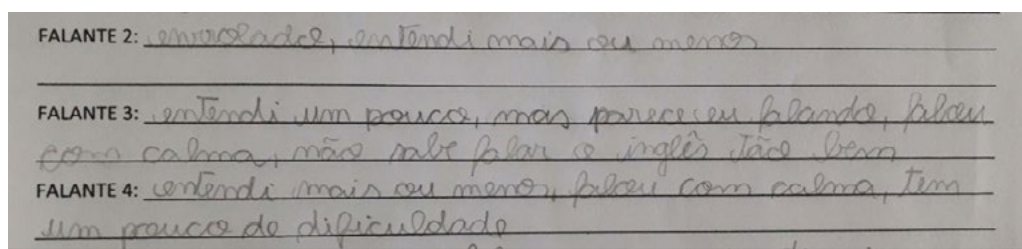 FALANTE 2: enrolado, entendi mais ou menos
FALANTE 3: entendi um pouco, mas parece eu falando, falou
com calma, não sabe falar o inglês tão bem
FALANTE 4: entendi mais ou menos, falou com calma, tem
um pouco de dificuldade